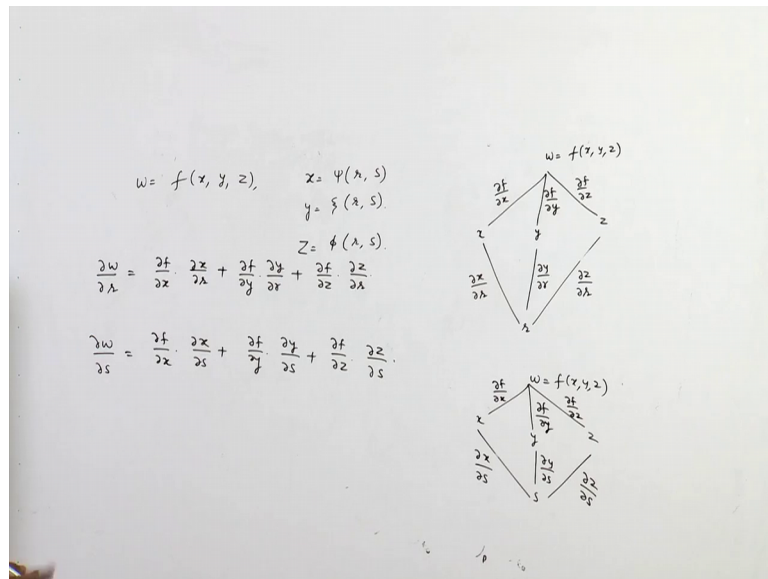 w = f(x, y, z),
x = ψ(r, s)
y = ξ(r, s).
z = ϕ(r, s).
∂w/∂r = ∂f/∂x · ∂x/∂r + ∂f/∂y · ∂y/∂r + ∂f/∂z · ∂z/∂r.
∂w/∂s = ∂f/∂x · ∂x/∂s + ∂f/∂y · ∂y/∂s + ∂f/∂z · ∂z/∂s.
w = f(x, y, z)
∂f/∂x ∂f/∂y ∂f/∂z
x y z
∂x/∂r ∂y/∂r ∂z/∂r
r
w = f(x, y, z)
∂f/∂x ∂f/∂y ∂f/∂z
x y z
∂x/∂s ∂y/∂s ∂z/∂s
s